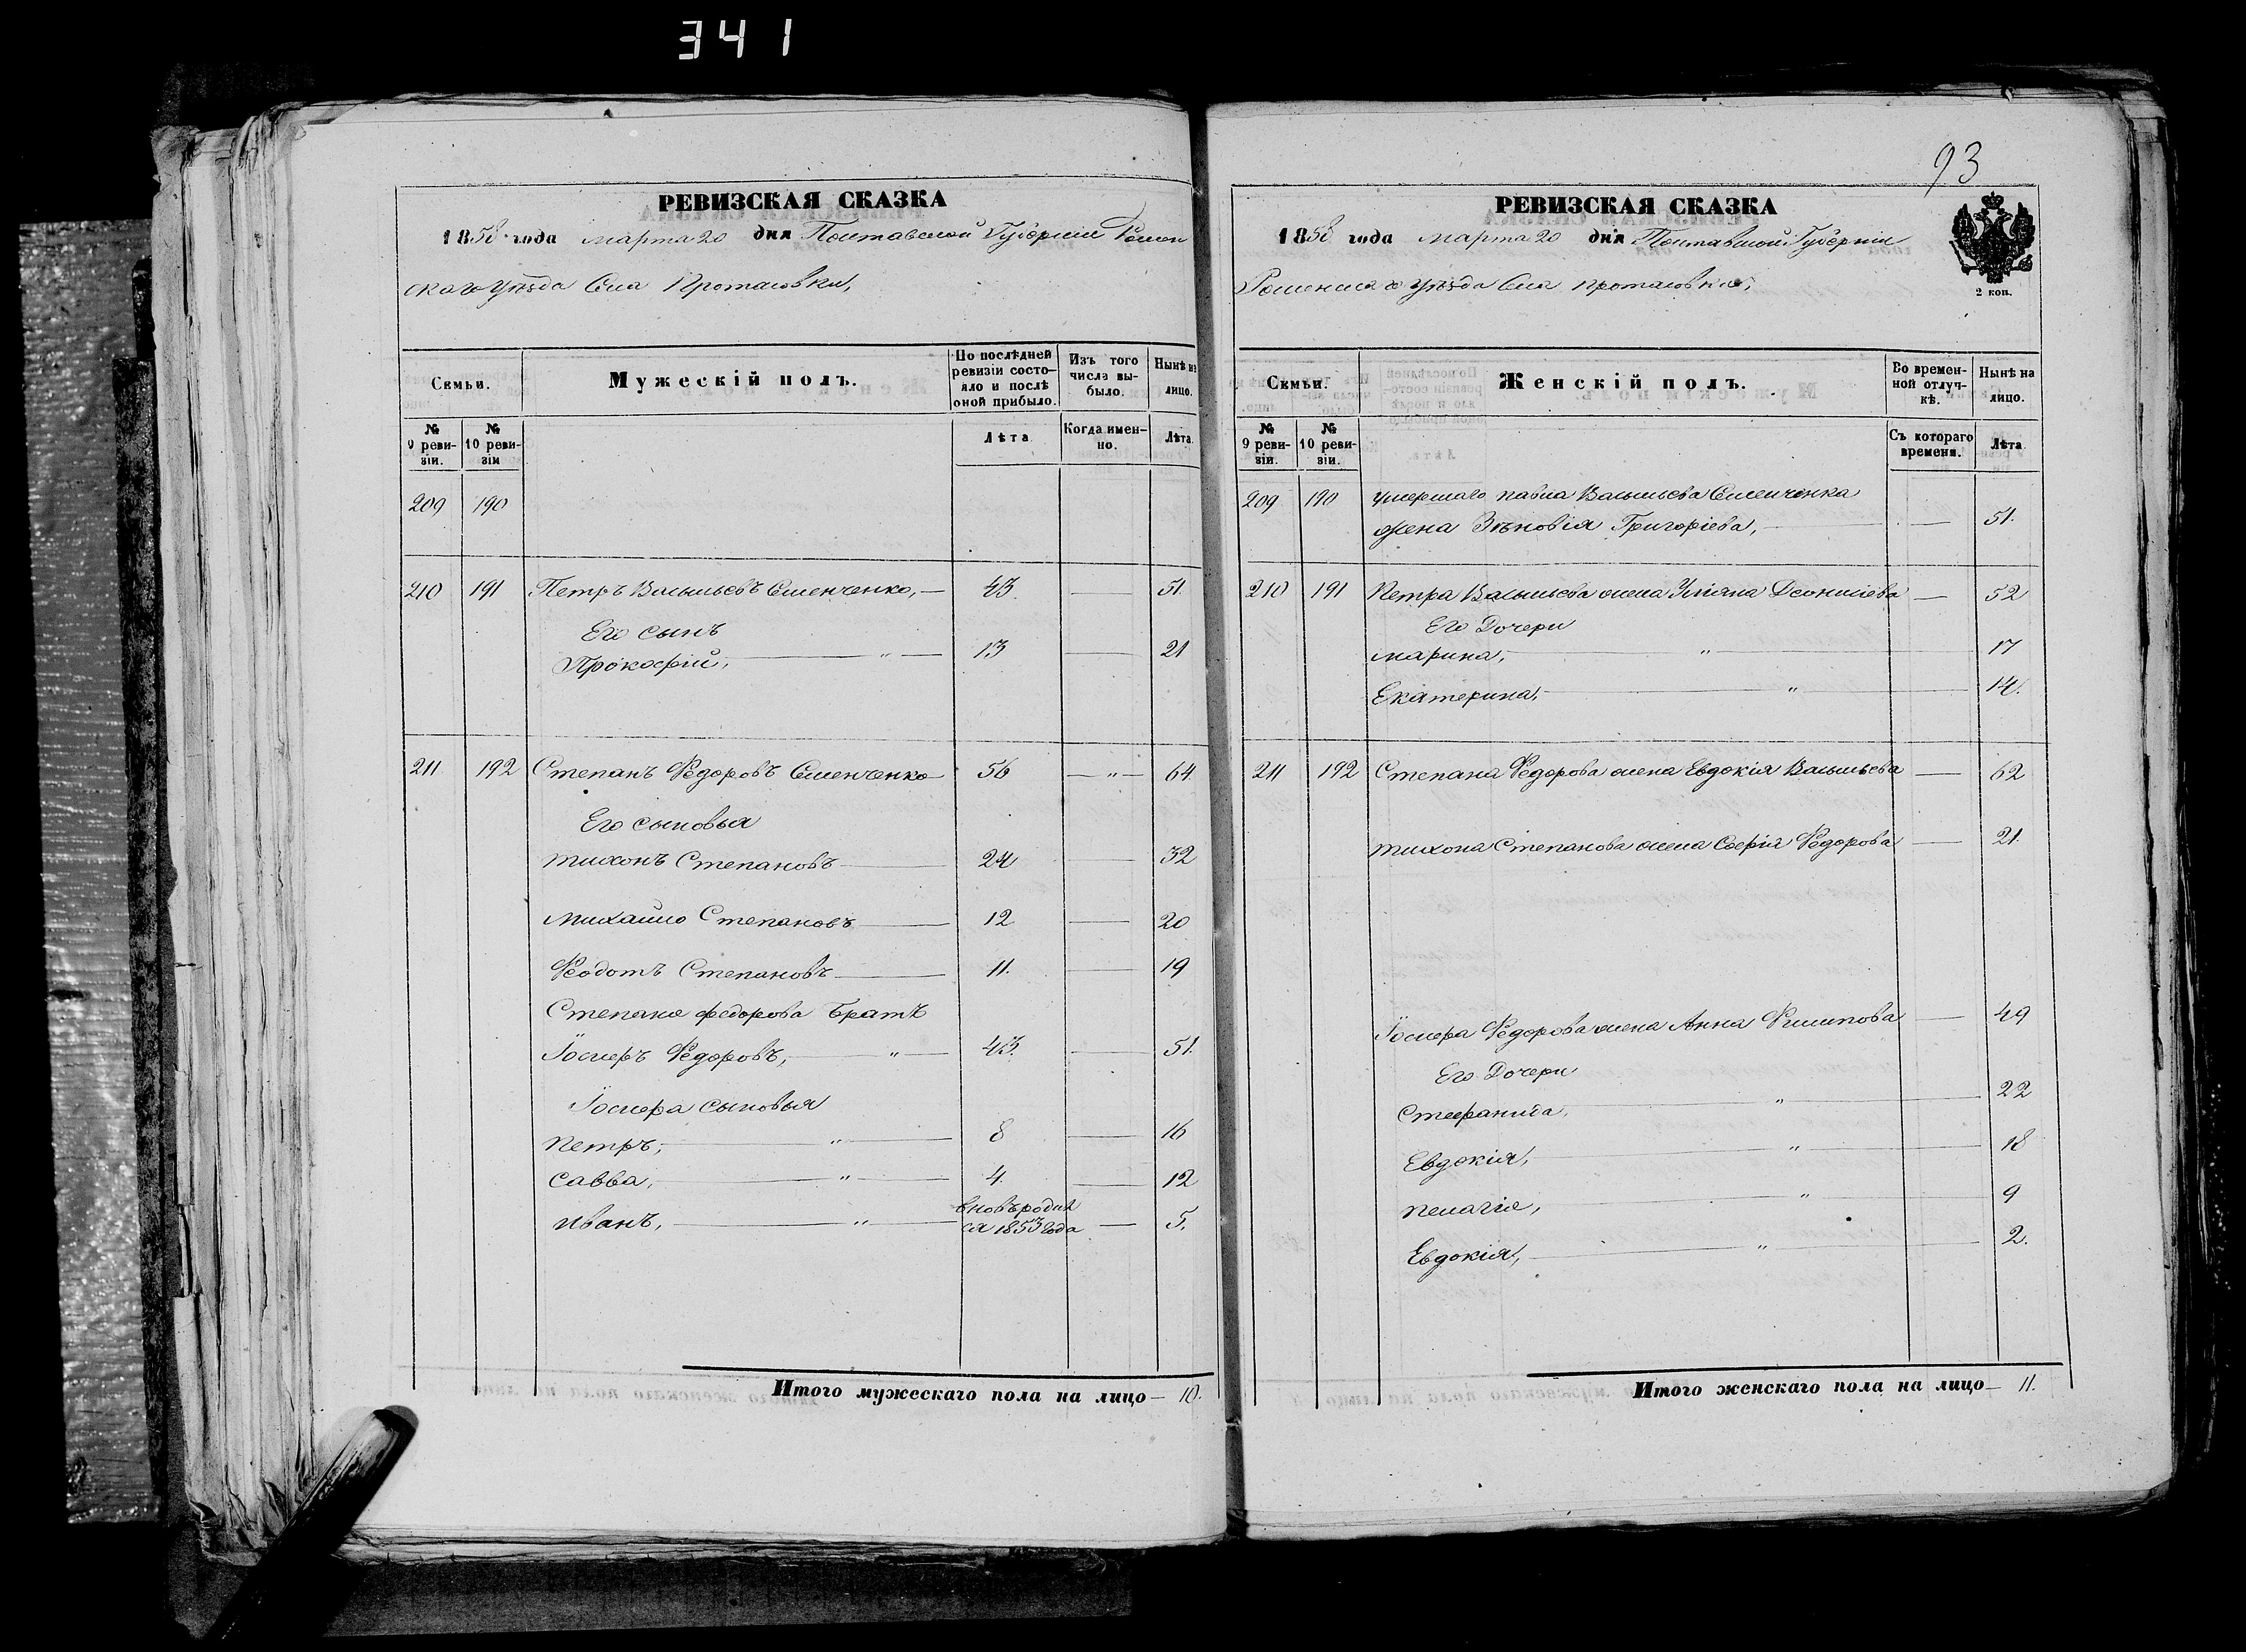 341
РЕВИЗСКАЯ СКАЗКА
1858 года марта 20 дня Полтавской Губерніи Ромен
скаго уѣзда Села Протасовки,
Семьи.
Мужескій полъ.
По послѣдней ревизіи состояло и послѣ оной прибыло.
Изъ того числа выбыло.
Нынѣ на лицо.
№ 9 ревизіи.
№ 10 ревизіи
Лѣта
Когда именно.
Лѣта.
209 190
210 191 Петръ Васильевъ Семенченко, — 43. — 51.
Его сынъ
Прокофій, — " — 13 — 21
211 192 Степанъ Ѳедоровъ Семенченко — 56 — " — 64
Его сыновья
Тихонъ Степановъ — 24 — 32
Михайло Степановъ — 12 — 20
Ѳеодотъ Степановъ — 11. — 19
Степана федорова Братъ
Ѳедоровъ, — " — 43. — 51.
сыновья
Петръ, — " — 8 — 16
Савва, — " — 4. — 12
Иванъ, — " — вновь родил
ся 1853 года — 5.
Итого мужескаго пола на лицо — 10.
93
РЕВИЗСКАЯ СКАЗКА
1858 года марта 20 дня Полтавской Губерніи
Роменскаго уѣзда Села Протасовки,
2 коп.
Семьи.
Женскій полъ.
Во временной отлучкѣ.
Нынѣ на лицо.
№ 9 ревизіи.
№ 10 ревизіи.
Съ котораго времени.
Лѣта
209 190 умершаго павла Васильева Семенченка
жена Зѣновія Григоріева, — — 51.
210 191 Петра Васильева жена Уліяна Деонисіева — 52
Его Дочери
марина, — " — 17
Екатерина, — " — 14.
211 192 Степана Ѳедорова жена Евдокія Васильева — 62
Тихона Степанова жена Софія Ѳедорова — 21.
Ѳедорова жена Анна Филипова — 49
Его Дочери
Стефанида, — " — 22
Евдокія, — " — 18
Пелагія, — " — 9
Евдокія, — " — 2.
Итого женскаго пола на лицо — 11.